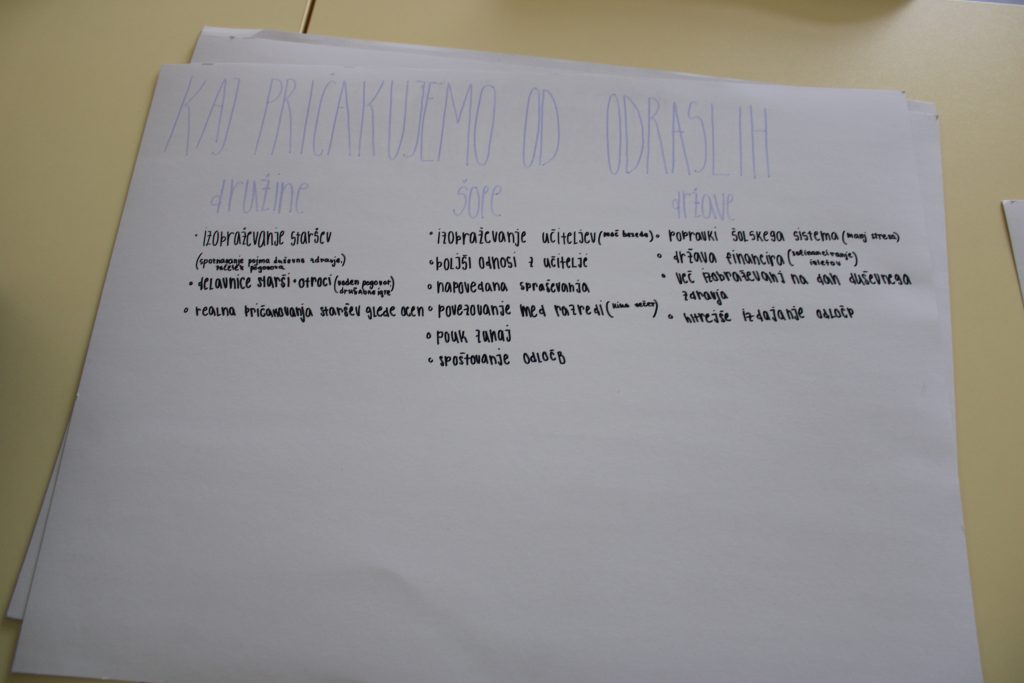 KAJ PRIČAKUJEMO OD ODRASLIH
družine
• izobraževanje staršev
(spoznavanje pojma duševno zdravje)
začetek pogovora
• delavnice starši + otroci (voden pogovor,
družabne igre)
• realna pričakovanja staršev glede ocen
šole
• izobraževanje učiteljev (moč besede)
• boljši odnosi z učitelje
• napovedana spraševanja
• povezovanje med razredi (kino večer)
• pouk zunaj
• spoštovanje odločb
države
• popravki šolskega sistema (manj stresa)
• država financira (sofinanciranje
izletov)
• več izobraževanj na dan duševnega
zdravja
• hitrejše izdajanje odločb